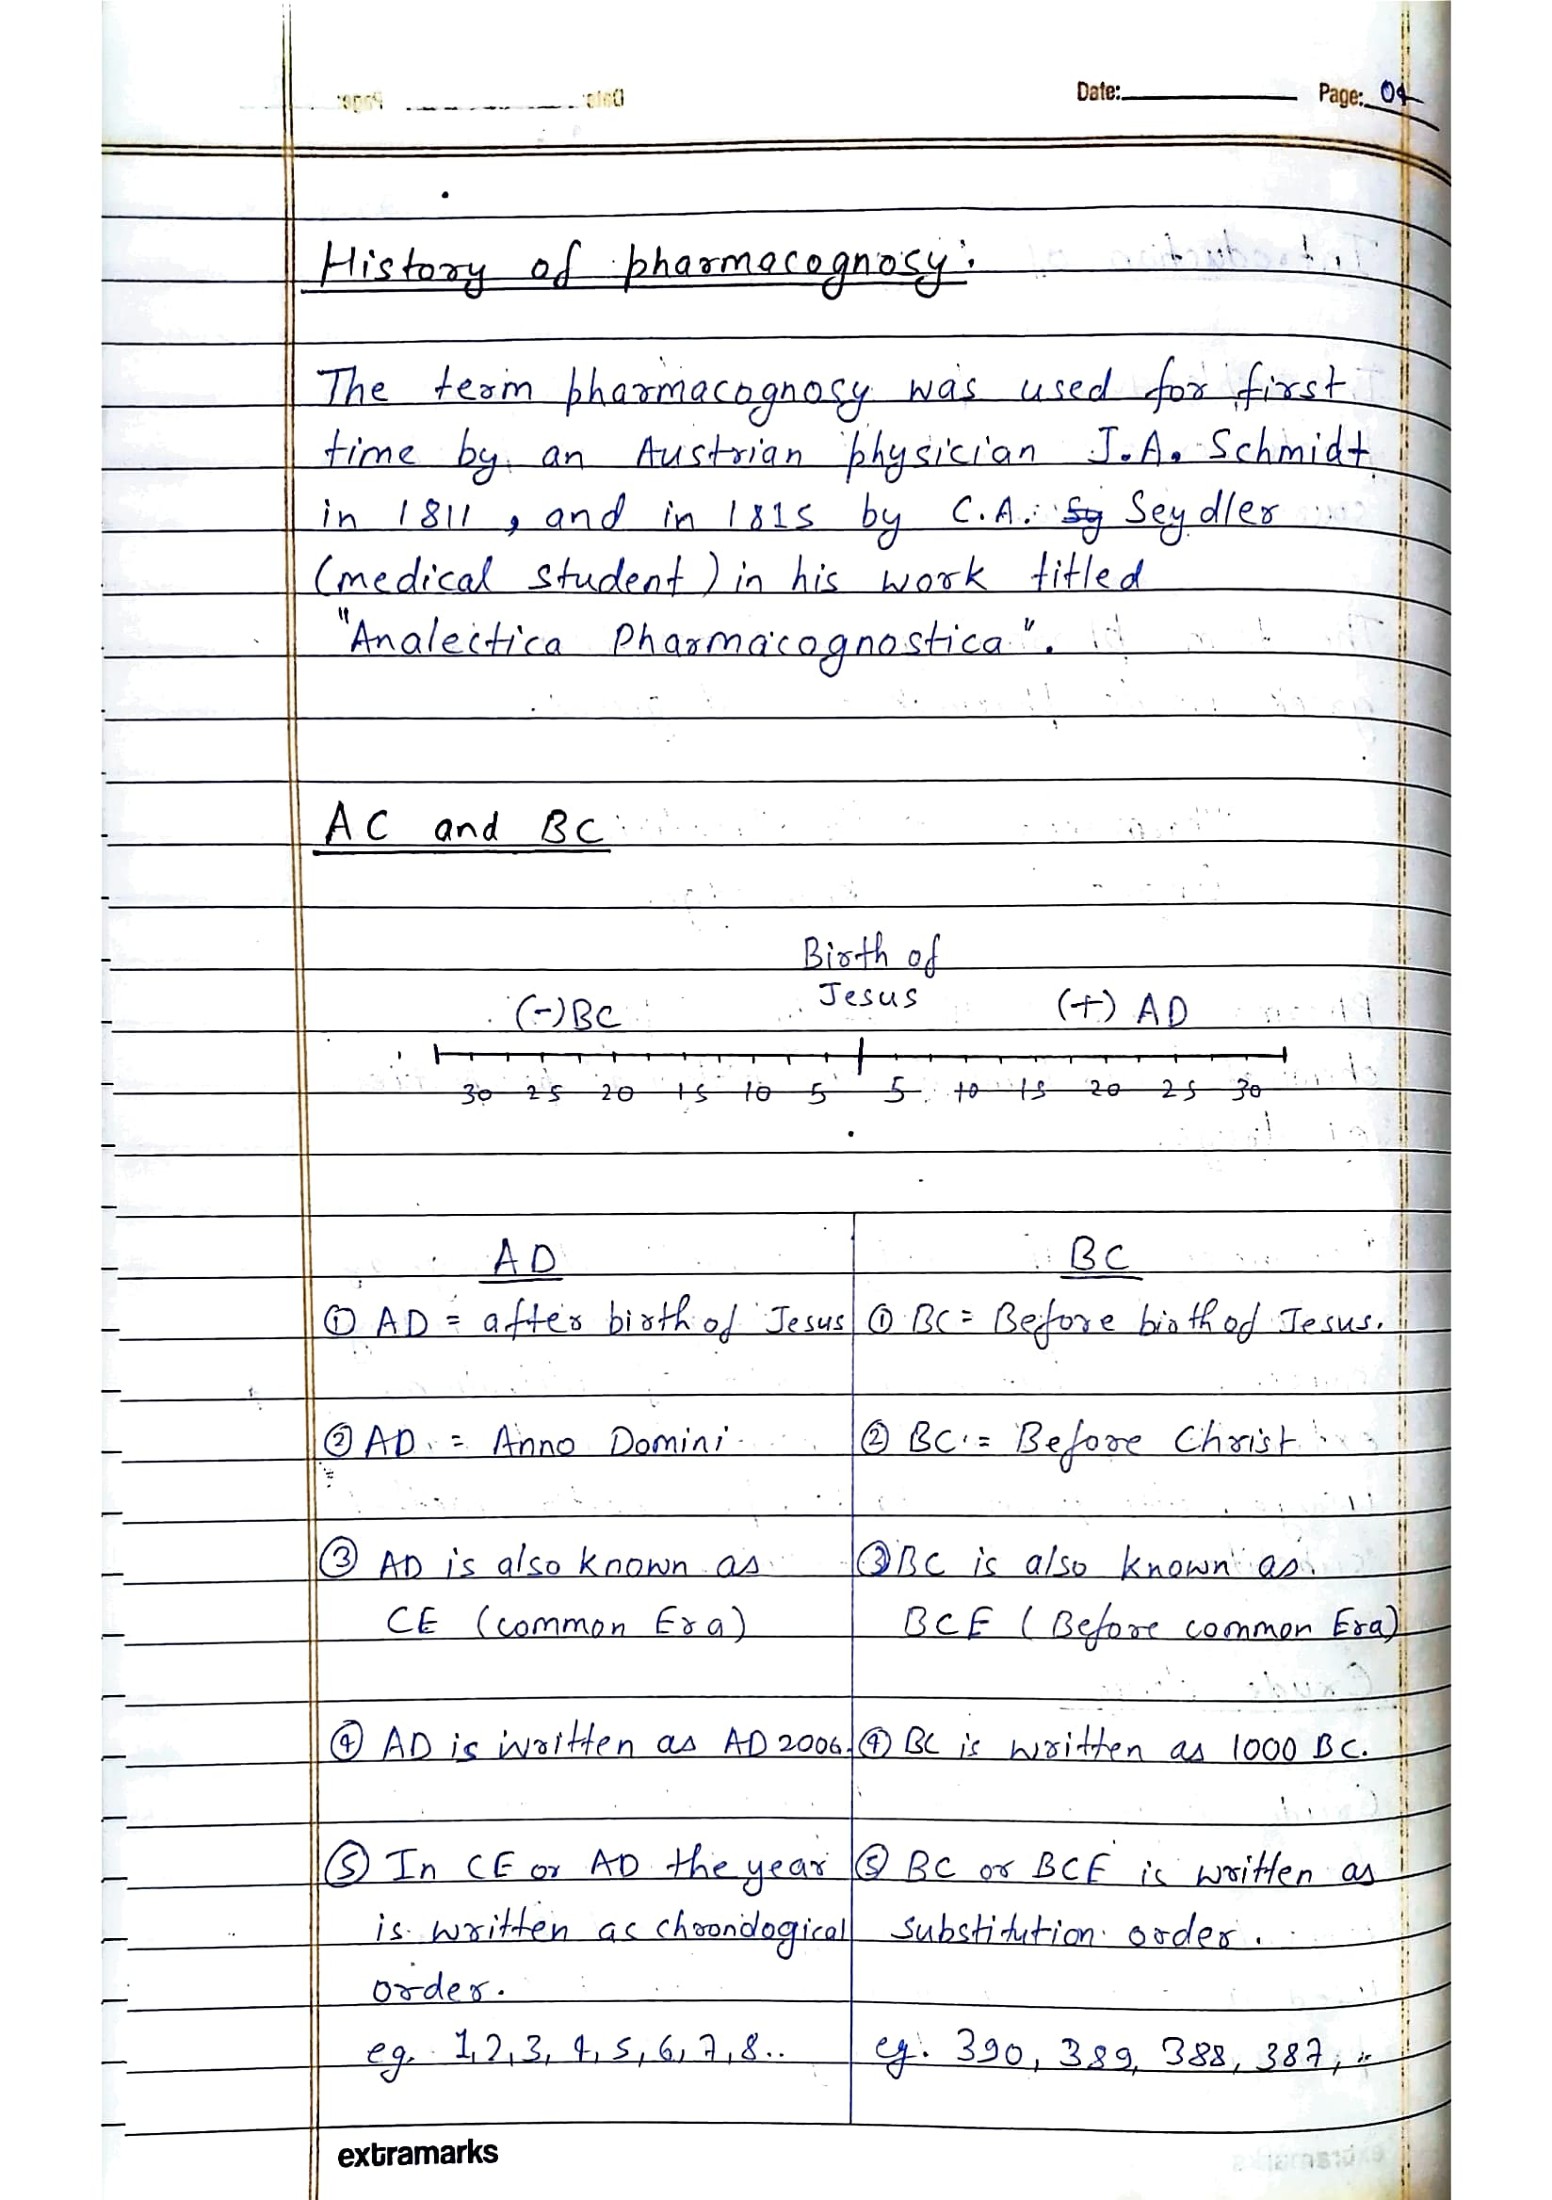 Date: Page: 04
History of pharmacognosy:
The term pharmacognosy was used for first
time by an Austrian physician J.A. Schmidt
in 1811, and in 1815 by C.A. Sy Seydler
(medical student) in his work titled
"Analectica Pharmacognostica".
AC and BC
Birth of
Jesus
(-) BC (+) AD
30 25 20 15 10 5 5 10 15 20 25 30
AD BC
① AD = after birth of Jesus ① BC = Before birth of Jesus.
② AD = Anno Domini ② BC = Before Christ
③ AD is also known as ③ BC is also known as
CE (common Era) BCE (Before common Era)
④ AD is written as AD 2006. ④ BC is written as 1000 BC.
⑤ In CE or AD the year ⑤ BC or BCE is written as
is written as chronological substitution order.
order.
eg. 1,2,3,4,5,6,7,8.. eg. 390, 389, 388, 387, ..
extramarks